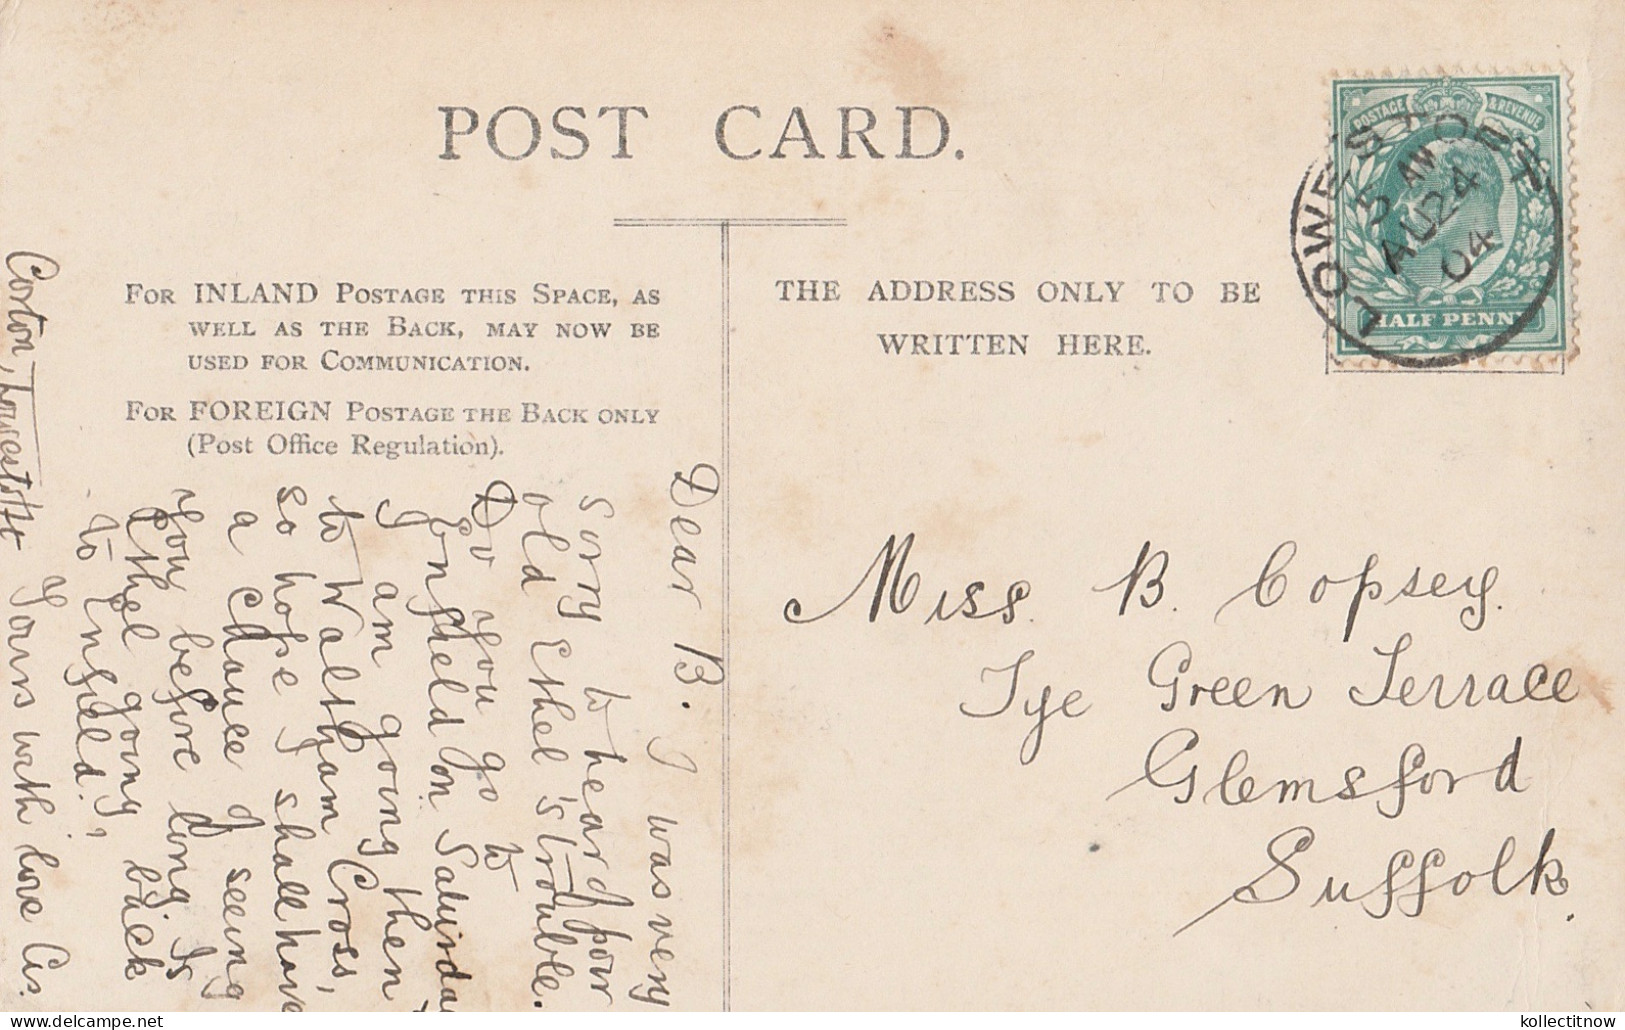 POST CARD.
POSTAGE & REVENUE
HALF PENNY
LOWESTOFT
5 AM
AU 24
04
FOR INLAND POSTAGE THIS SPACE, AS
WELL AS THE BACK, MAY NOW BE
USED FOR COMMUNICATION.
FOR FOREIGN POSTAGE THE BACK ONLY
(Post Office Regulation).
THE ADDRESS ONLY TO BE
WRITTEN HERE.
Miss. B. Copsey.
Tye Green Terrace
Glemsford
Suffolk.
Dear B. I was very
sorry to hear of poor
old Ethel's trouble.
Do you go to
Enfield on Saturday
I am going then
to Waltham Cross,
so hope I shall have
a chance of seeing
you before long. Is
Ethel going back
to Enfield?
Yours with love Cis.
Corton, Lowestoft
kollectitnow